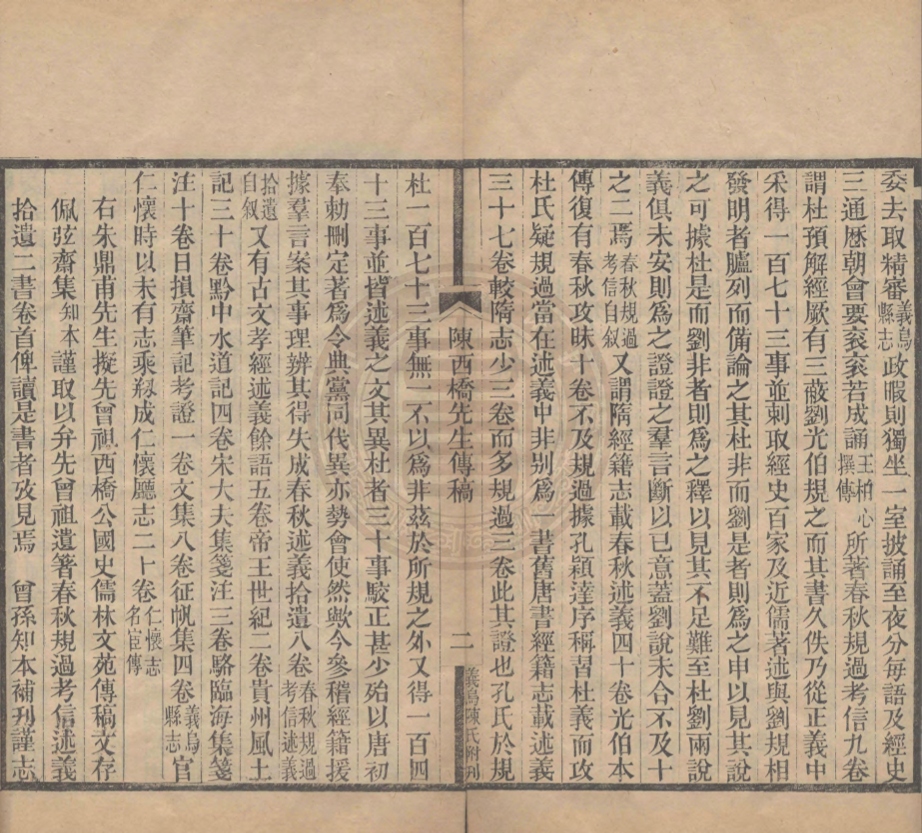 委去取精審義烏縣志政暇則獨坐一室披誦至夜分每語及經史
三通歷朝會要袞袞若成誦王柏心撰傳所著春秋規過考信九卷
謂杜預解經厥有三蔽劉光伯規之而其書久佚乃從正義中
采得一百七十三事並剌取經史百家及近儒著述與劉規相
發明者臚列而備論之其杜非而劉是者則爲之申以見其說
之可據杜是而劉非者則爲之釋以見其不足難至杜劉兩說
義俱未安則爲之證證之羣言斷以己意蓋劉說未合不及十
之二焉春秋規過考信自叙又謂隋經籍志載春秋述義四十卷光伯本
傳復有春秋攻昧十卷不及規過據孔穎達序稱習杜義而攻
杜氏疑規過當在述義中非別爲一書舊唐書經籍志載述義
三十七卷較隋志少三卷而多規過三卷此其證也孔氏於規
陳西橋先生傳稿
二
義烏陳氏附刊
杜一百七十三事無一不以爲非茲於所規之外又得一百四
十三事並皆述義之文其異杜者三十事駮正甚少殆以唐初
奉勅刪定著爲令典黨同伐異亦勢會使然歟今參稽經籍援
據羣言案其事理辨其得失成春秋述義拾遺八卷春秋規過考信述義
拾遺自叙又有古文孝經述義餘語五卷帝王世紀二卷貴州風土
記三十卷黔中水道記四卷宋大夫集箋注三卷駱臨海集箋
注十卷日損齋筆記考證一卷文集八卷征帆集四卷義烏縣志官
仁懷時以未有志乘剏成仁懷廳志二十卷仁懷志名宦傳
右朱鼎甫先生擬先曾祖西橋公國史儒林文苑傳稿文存
佩弦齋集知本謹取以弁先曾祖遺箸春秋規過考信述義
拾遺二書卷首俾讀是書者攷見焉　曾孫知本補刊謹志